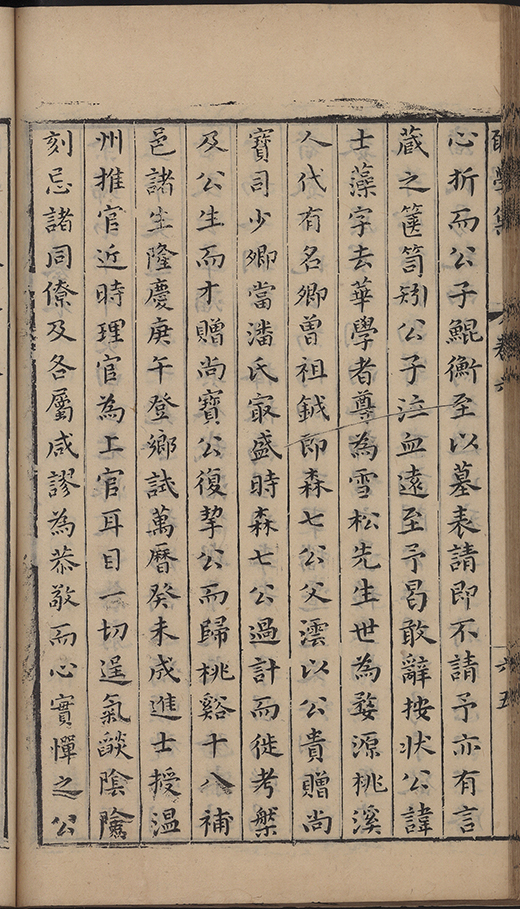 心折而公子鯤衡至以墓表請即不請予亦有言
藏之篋笥矧公子泣血遠至予曷敢辭按狀公諱
士藻字去華學者尊為雪松先生世為婺源桃溪
人代有名卿曾祖鉞即森七公父澐以公貴贈尚
寶司少卿當潘氏㝡盛時森七公過計而徙考槃
及公生而才贈尚寶公復挈公而歸桃谿十八補
邑諸生隆慶庚午登鄉試萬曆癸未成進士授溫
州推官近時理官為上官耳目一切逞氣燄陰隂
刻忌諸同僚及各屬咸謬為恭敬而心實憚之公